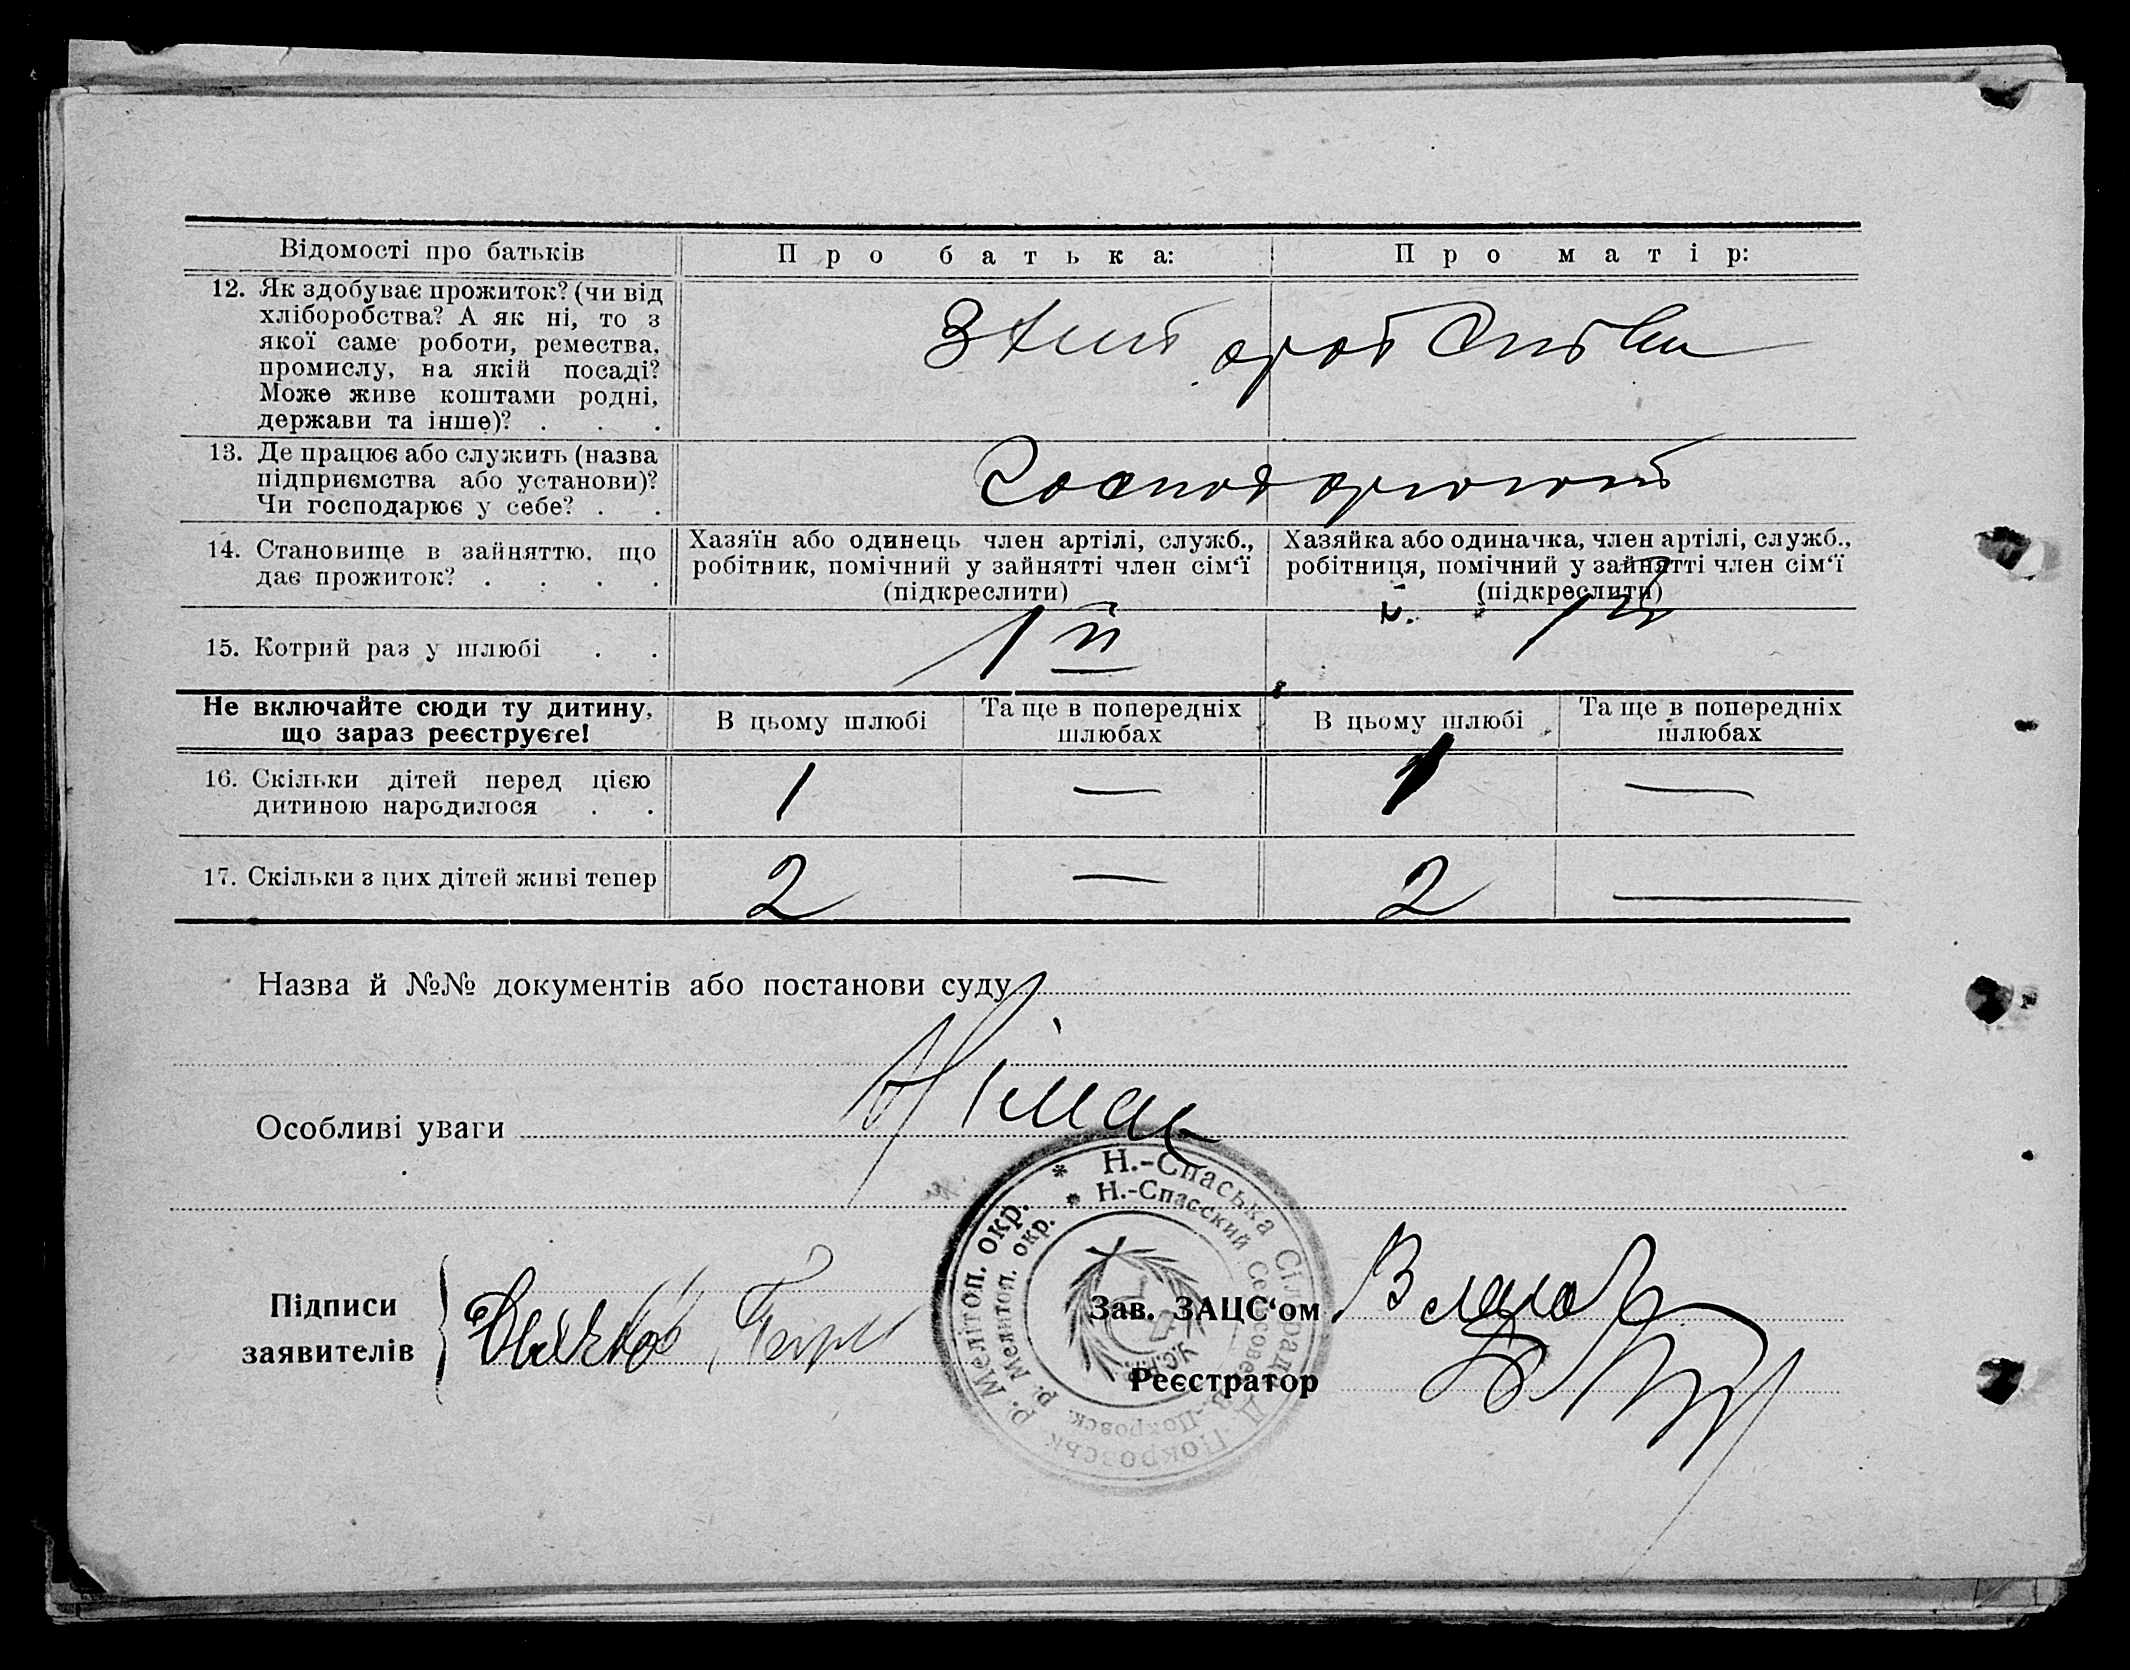 Відомості про батьків
Про батька:
Про матір:
12. Як здобуває прожиток? (чи від
хліборобства? А як ні, то з
якої саме роботи, ремества,
промислу, на якій посаді?
Може живе коштами родні,
держави та інше)? . . .
13. Де працює або служить (назва
підприємства або установи)?
Чи господарює у себе? . .
14. Становище в зайняттю, що
дає прожиток? . . . .
Хазяїн або одинець член артілі, служб.,
робітник, помічний у зайнятті член сім‘ї
(підкреслити)
Хазяйка або одиначка, член артілі, служб.,
робітниця, помічний у зайнятті член сім‘ї
(підкреслити)
15. Котрий раз у шлюбі . .
1й
1й
Не включайте сюди ту дитину,
що зараз реєструєте!
В цьому шлюбі
Та ще в попередніх
шлюбах
В цьому шлюбі
Та ще в попередніх
шлюбах
16. Скільки дітей перед цією
дитиною народилося . .
1 — 1 —
17. Скільки з цих дітей живі тепер
2 — 2 —
Назва й №№ документів або постанови суду
Немає
Особливі уваги
Підписи
заявителів
Н.-Спаська Сільрада Покровськ. р. Мелітоп. окр.
Н.-Спасский Сельсовет Покровск. р. Мелитоп. окр.
У.С.Р.Р.
Зав. ЗАЦС‘ом
Реєстратор